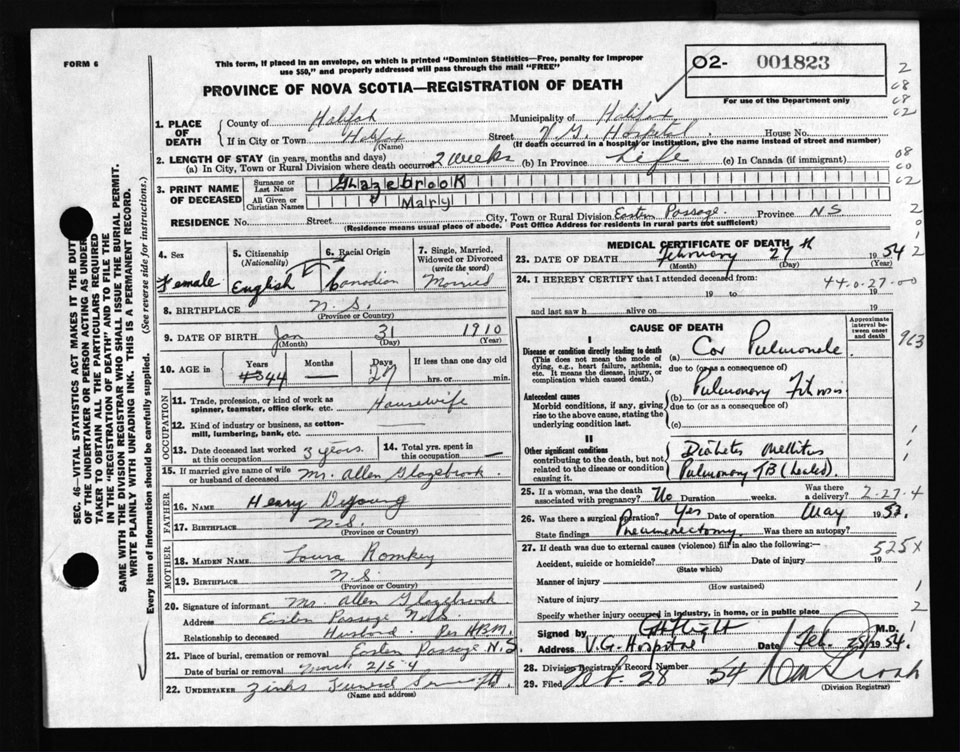 FORM 6
This form, if placed in an envelope, on which is printed "Dominion Statistics—Free, penalty for improper
use $50," and properly addressed will pass through the mail "FREE"
PROVINCE OF NOVA SCOTIA—REGISTRATION OF DEATH
02- 001823
For use of the Department only
2
C8
C8
C2
08
C0
C2
2
0
1
2
1. PLACE OF DEATH
County of Halifax Municipality of Halifax
If in City or Town Halifax (Name) Street V.G. Hospital. House No.
(If death occurred in a hospital or institution, give the name instead of street and number)
2. LENGTH OF STAY (in years, months and days)
(a) In City, Town or Rural Division where death occurred 2 weeks (b) In Province Life (c) In Canada (if immigrant)
3. PRINT NAME OF DECEASED
Surname or Last Name Glazebrook
All Given or Christian Names Mary
RESIDENCE No. Street City, Town or Rural Division Eastern Passage. Province N S
(Residence means usual place of abode. Post Office Address for residents in rural parts not sufficient)
4. Sex Female
5. Citizenship (Nationality) English
6. Racial Origin Canadian
7. Single, Married, Widowed or Divorced (write the word) Married
8. BIRTHPLACE N.S. (Province or Country)
9. DATE OF BIRTH Jan 31 1910
(Month) (Day) (Year)
10. AGE in Years 44 Months — Days 27 If less than one day old hrs. or min.
OCCUPATION
11. Trade, profession, or kind of work as spinner, teamster, office clerk, etc. Housewife
12. Kind of industry or business, as cotton-mill, lumbering, bank, etc.
13. Date deceased last worked at this occupation 3 years.
14. Total yrs. spent in this occupation —
15. If married give name of wife or husband of deceased Mr. Allen Glazebrook.
FATHER
16. NAME Henry DeYoung
17. BIRTHPLACE N.S. (Province or Country)
MOTHER
18. MAIDEN NAME Laura Romkey
19. BIRTHPLACE N.S. (Province or Country)
20. Signature of informant Mr. Allen Glazebrook
Address Eastern Passage
Relationship to deceased Husband. Per H.B.M.
21. Place of burial, cremation or removal Eastern Passage N.S
Date of burial or removal March 2/54
22. UNDERTAKER Zinks Funeral
(Name and address)
MEDICAL CERTIFICATE OF DEATH
23. DATE OF DEATH February 27th 1954
(Month) (Day) (Year)
24. I HEREBY CERTIFY that I attended deceased from:
44-0-27-00
19 to 19
and last saw h alive on 19
CAUSE OF DEATH
Approximate interval between onset and death
I
Disease or condition directly leading to death
(This does not mean the mode of dying, e.g., heart failure, asthenia, etc. It means the disease, injury, or complication which caused death.)
(a) Cor Pulmonale
due to (or as a consequence of)
Antecedent causes
Morbid conditions, if any, giving rise to the above cause, stating the underlying condition last.
(b) Pulmonary Fibrosis
due to (or as a consequence of)
(c)
II
Other significant conditions
contributing to the death, but not related to the disease or condition causing it.
Diabetes Mellitus
Pulmonary TB (healed).
25. If a woman, was the death associated with pregnancy? No Duration weeks. Was there a delivery? 2-27-4
26. Was there a surgical operation? Yes Date of operation May 1953.
State findings Pneumonectomy. Was there an autopsy?
27. If death was due to external causes (violence) fill in also the following:—
525X
Accident, suicide or homicide? Date of injury 19
(State which)
Manner of injury
(How sustained)
Nature of injury
Specify whether injury occurred in industry, in home, or in public place
Signed by M.D.
Address V.G. Hospital Date Feb. 28 1954.
28. Division Registrar's Record Number
29. Filed Feb. 28 1954
(Division Registrar)
SEC. 46—VITAL STATISTICS ACT MAKES IT THE DUTY
OF THE UNDERTAKER OR PERSON ACTING AS UNDER-
TAKER TO OBTAIN ALL THE PARTICULARS REQUIRED
IN THE "REGISTRATION OF DEATH" AND TO FILE THE
SAME WITH THE DIVISION REGISTRAR WHO SHALL ISSUE THE BURIAL PERMIT.
WRITE PLAINLY WITH UNFADING INK. THIS IS A PERMANENT RECORD.
Every item of information should be carefully supplied. (See reverse side for instructions.)